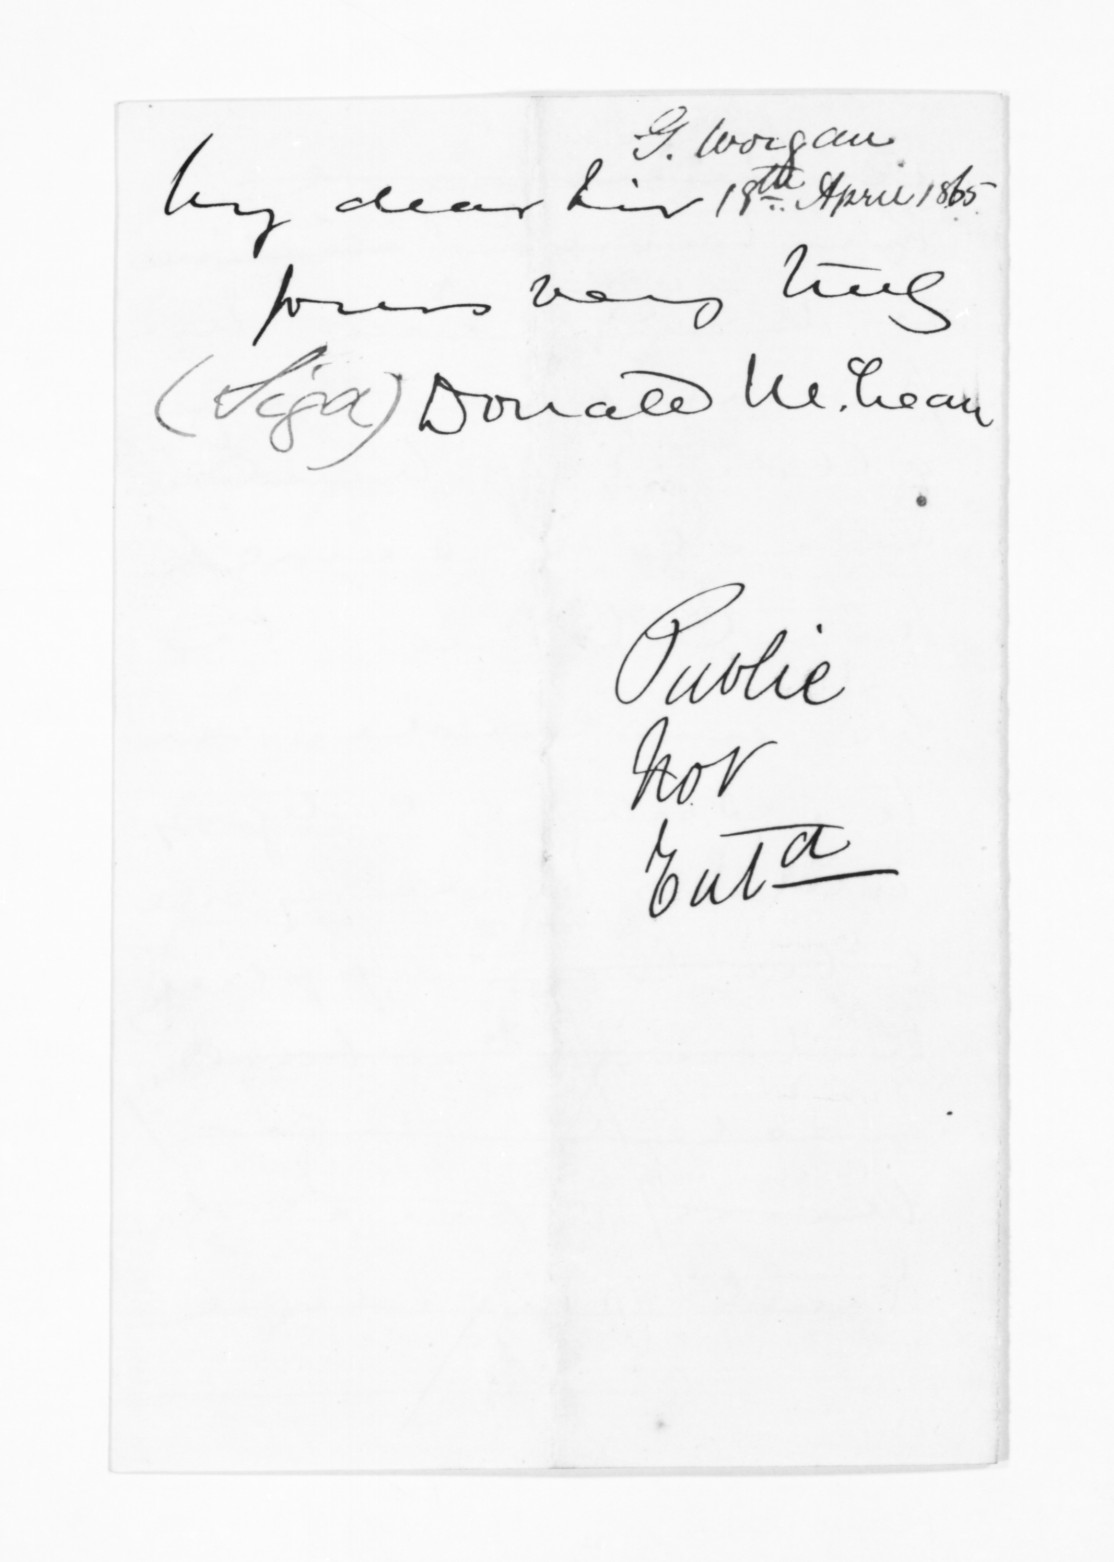 G. Worgan
My dear Sir 18th April 1865
Yours very truly
(Sigd) Donald McLean
Public
Not
Entd